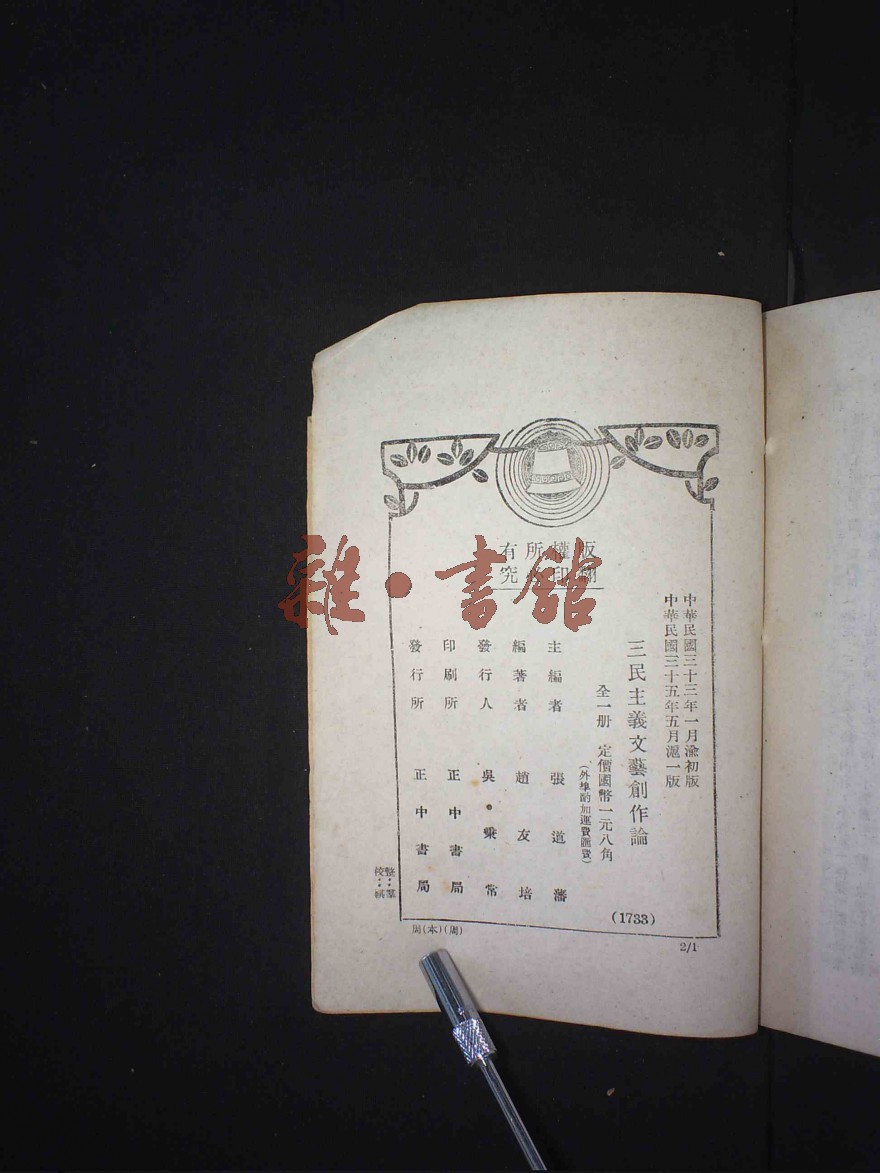 版權所有
翻印必究
中華民國三十三年一月渝初版
中華民國三十五年五月滬一版
三民主義文藝創作論
全一册 定價國幣一元八角
(外埠酌加運費匯費)
主編者 張道藩
編著者 趙友培
發行人 吳秉常
印刷所 正中書局
發行所 正中書局
(1733)
整:羣
校:祺
周(本)(周)
2/1
雜·書館